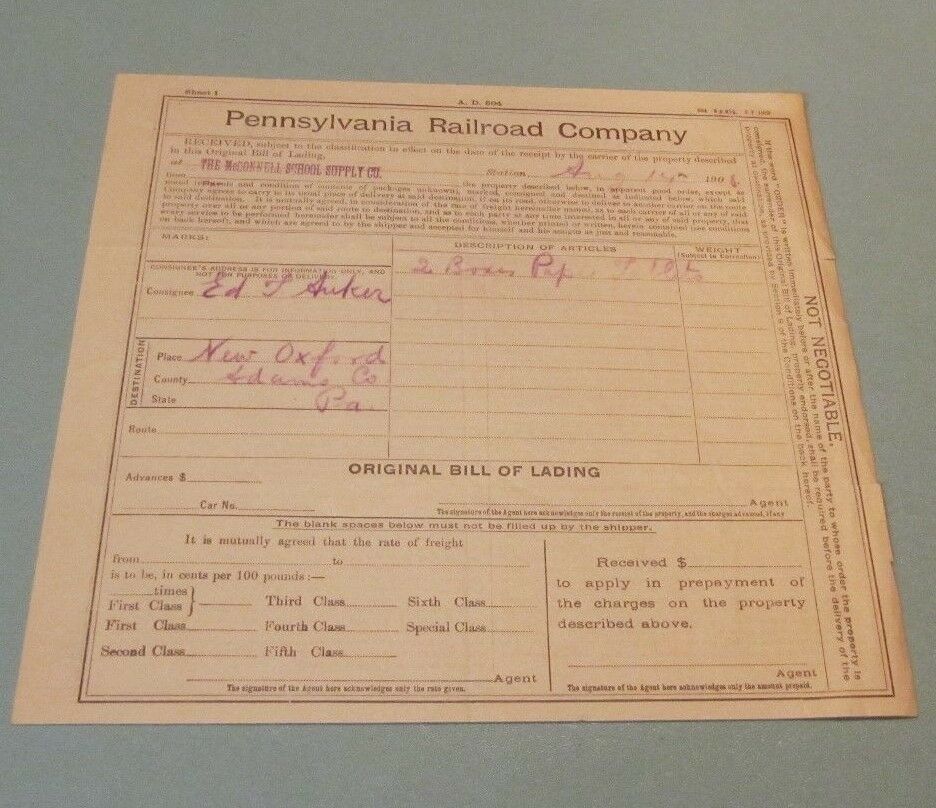 Sheet 1
A. D. 604
Pennsylvania Railroad Company
RECEIVED, subject to the classification in effect on the date of the receipt by the carrier of the property described
in this Original Bill of Lading,
at THE McCONNELL SCHOOL SUPPLY CO. Station Aug 190
from the property described below, in apparent good order, except as
noted (contents and condition of contents of packages unknown), marked, consigned, and destined as indicated below, which said
Company agrees to carry to its usual place of delivery at said destination, if on its road, otherwise to deliver to another carrier on the route
to said destination. It is mutually agreed, in consideration of the rate of freight hereinafter named, as to each carrier of all or any of said
property over all or any portion of said route to destination, and as to each party at any time interested in all or any of said property, that
every service to be performed hereunder shall be subject to all the conditions, whether printed or written, herein contained (see conditions
on back hereof), and which are agreed to by the shipper and accepted for himself and his assigns as just and reasonable.
MARKS:
DESCRIPTION OF ARTICLES
WEIGHT
(Subject to Correction)
CONSIGNEE'S ADDRESS IS FOR INFORMATION ONLY, AND
NOT FOR PURPOSES OF DELIVERY.
2 Boxes Pap
Consignee Ed
DESTINATION
Place New Oxford
County Adams Co
State Pa.
Route
ORIGINAL BILL OF LADING
Advances $
Car No.
Agent
The signature of the Agent here acknowledges only the receipt of the property, and the charges advanced, if any.
The blank spaces below must not be filled up by the shipper.
It is mutually agreed that the rate of freight
from to
is to be, in cents per 100 pounds:—
times
First Class
Third Class
Sixth Class
First Class
Fourth Class
Special Class
Second Class
Fifth Class
Agent
The signature of the Agent here acknowledges only the rate given.
Received $
to apply in prepayment of
the charges on the property
described above.
Agent
The signature of the Agent here acknowledges only the amount prepaid.
NOT NEGOTIABLE.
If the word "ORDER" is written immediately before or after the name of the party to whose order the property is
consigned, the surrender of this Original Bill of Lading, properly endorsed, shall be required before the delivery of the
property at destination, as provided by Section 9 of the Conditions on the back hereof.